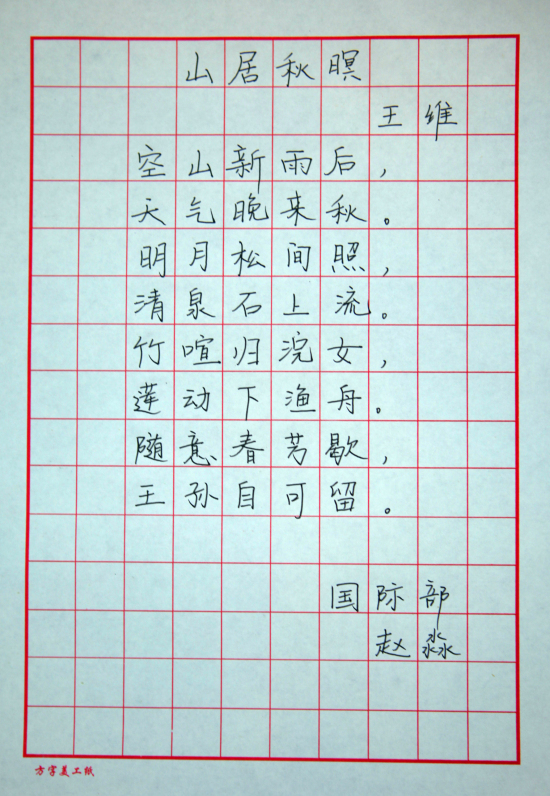 山居秋暝
王维
空山新雨后，
天气晚来秋。
明月松间照，
清泉石上流。
竹喧归浣女，
莲动下渔舟。
随意春芳歇，
王孙自可留。
国际部
赵淼
方字美工纸